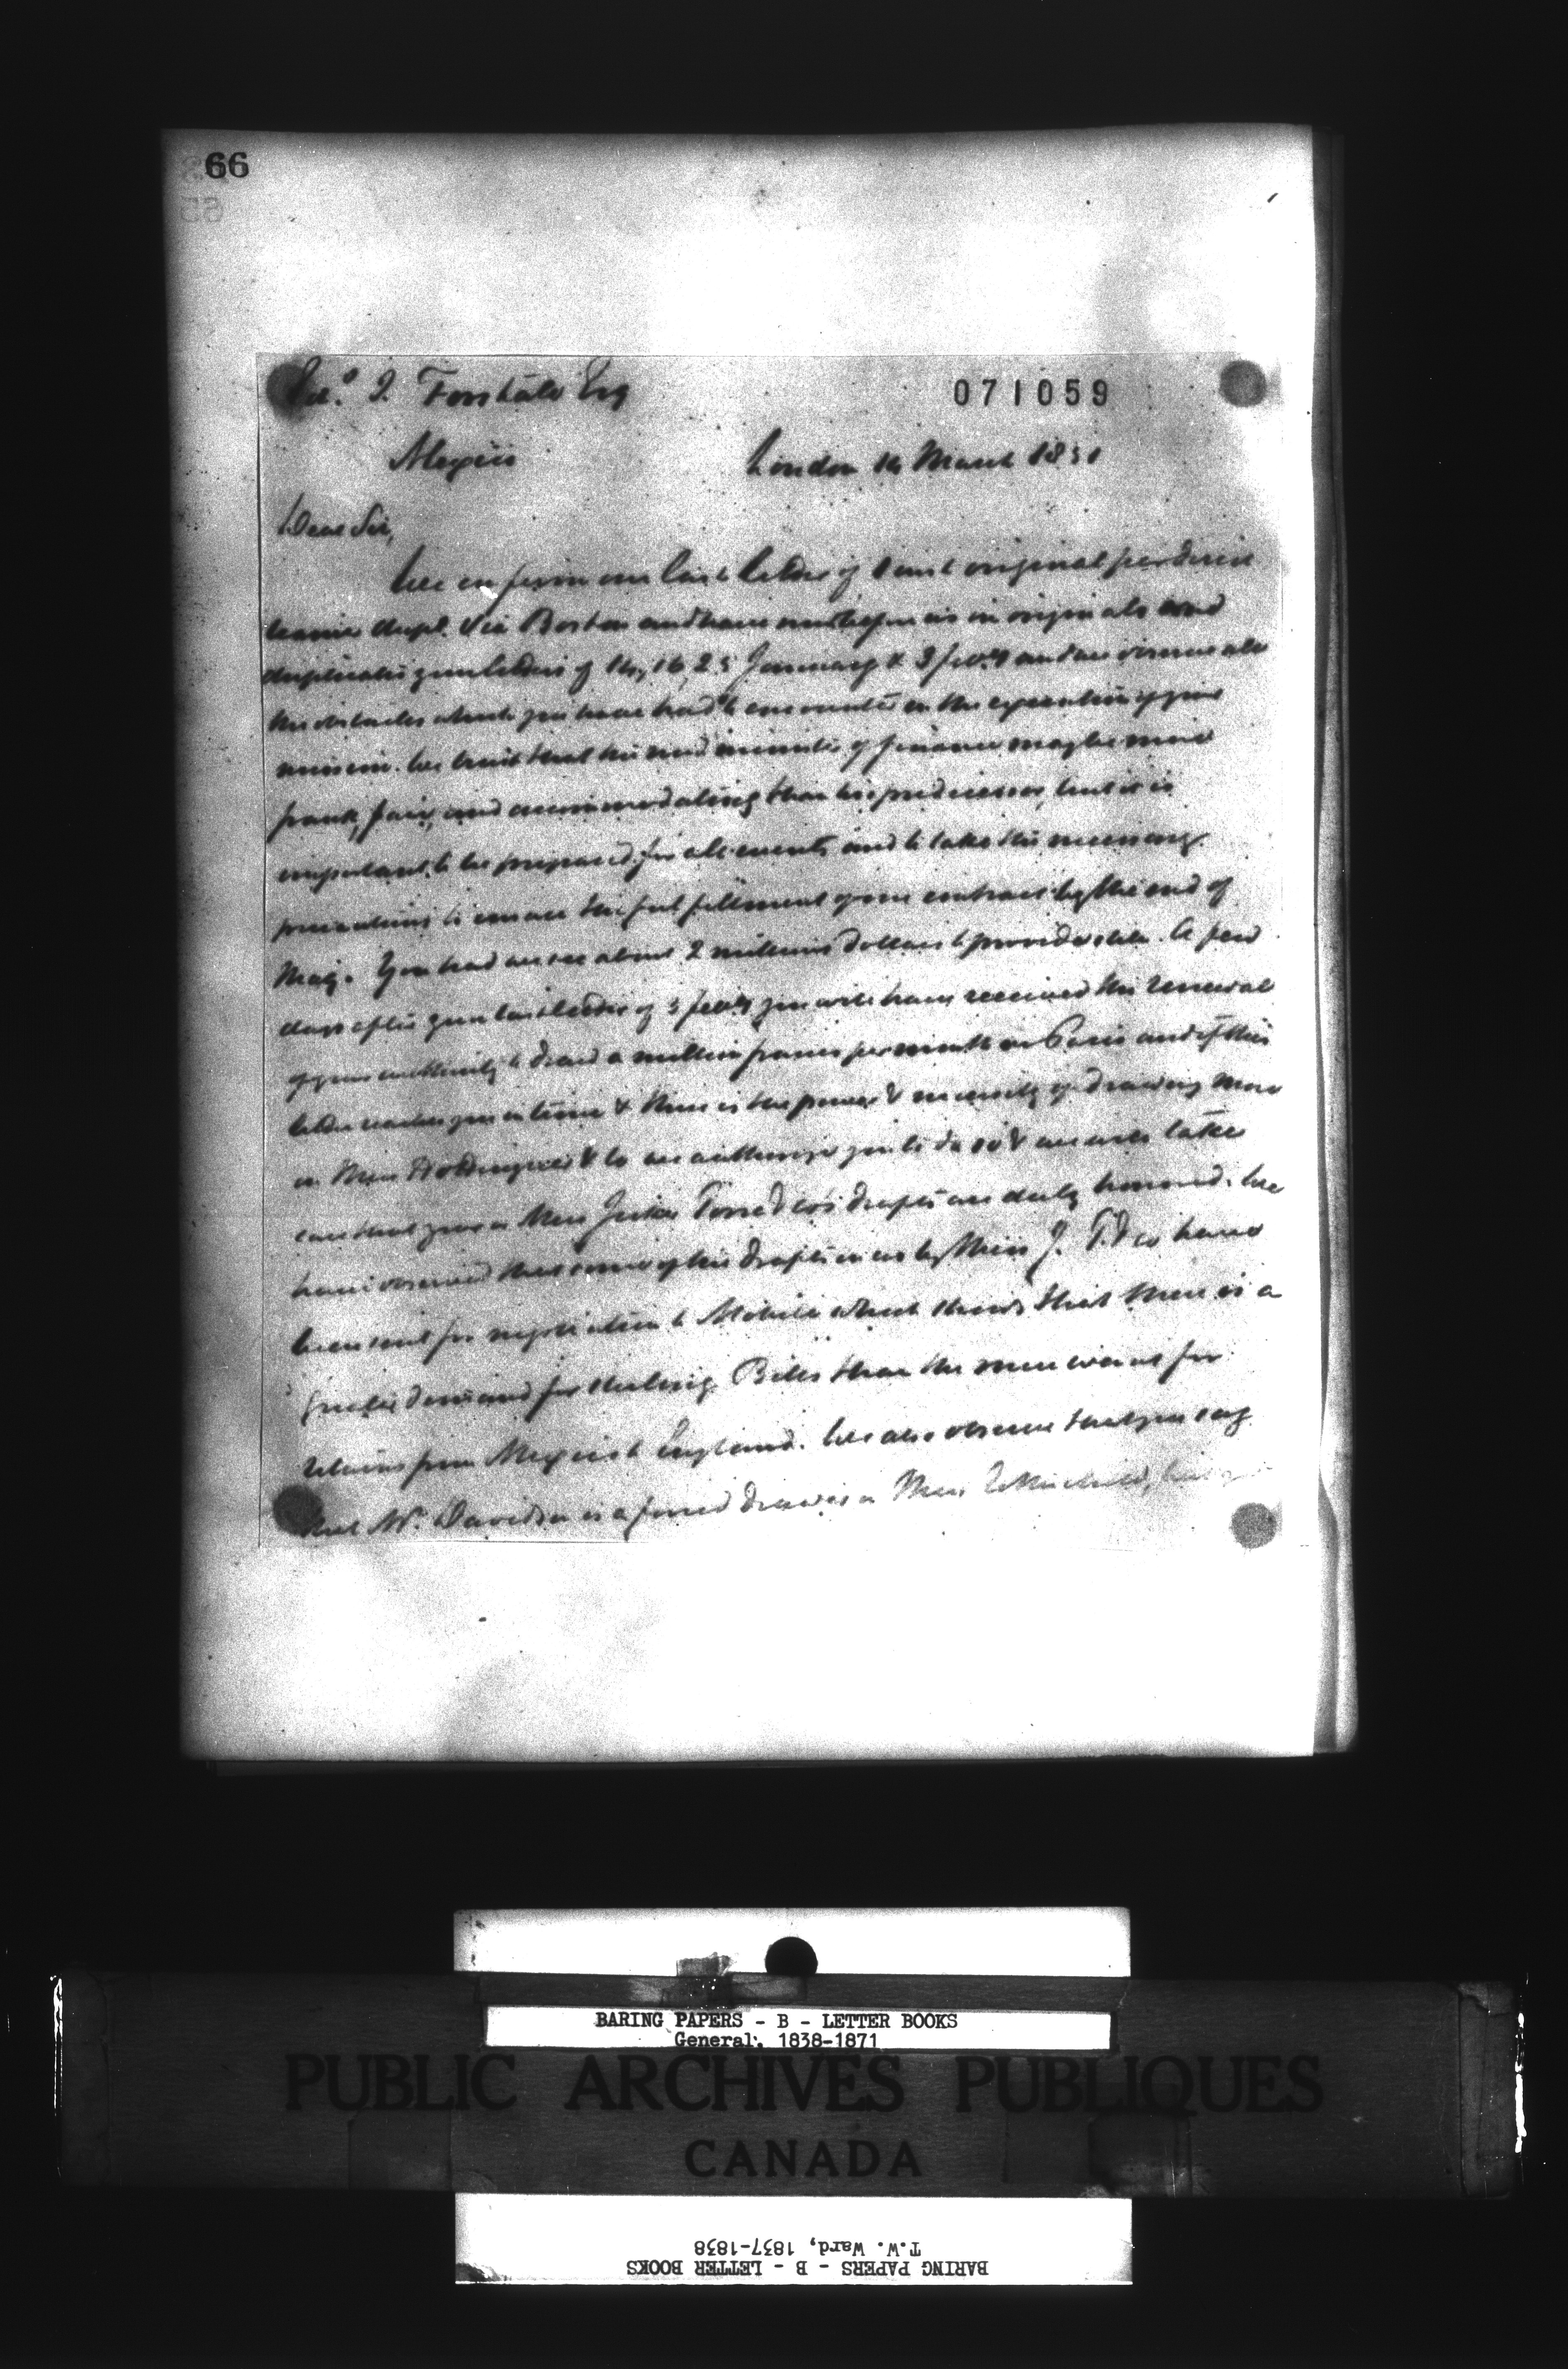 66
Edd. J. Forstall Esq
071059
Mexico London 14 March 1851
Dear Sir,
We confirm our last letter of 1 inst original per direct
steamer dupl. Via Boston and have now before us in originals and
duplicates your letters of 14, 16, 25 January & 3 feby and we observe all
the obstacles which you have had to encounter in the execution of your
mission. We trust that the new minister of finance may be more
frank, fair, and accommodating than his predecessor, but it is
important to be prepared for all events and to take the necessary
precautions to ensure the fulfillment of our contract by the end of
May. You had we see about 2 millions dollars to provide still. A few
days after your last letter of 3 feby you will have received the renewal
of your authority to draw a million francs per month on Paris and if this
letter reaches you in time & there is the power & necessity of drawing more
on Mess Hottinguer & Co we authorize you to do so & we will take
care that your or Mess Jecker Torre & Cos drafts are duly honored. We
have observed that some of the drafts on us by Mess J. T. & Co have
been sent for negotiation to Mobile which shows that there is a
greater demand for sterling Bills than the mere want for
returns from Mexico to England. We also observe that you say
that Mr. Davidson is a forced drawer on Mess Rothschild, but
BARING PAPERS - B - LETTER BOOKS
General, 1838-1871
PUBLIC ARCHIVES PUBLIQUES
CANADA
T.W. Ward, 1837-1838
BARING PAPERS - B - LETTER BOOKS